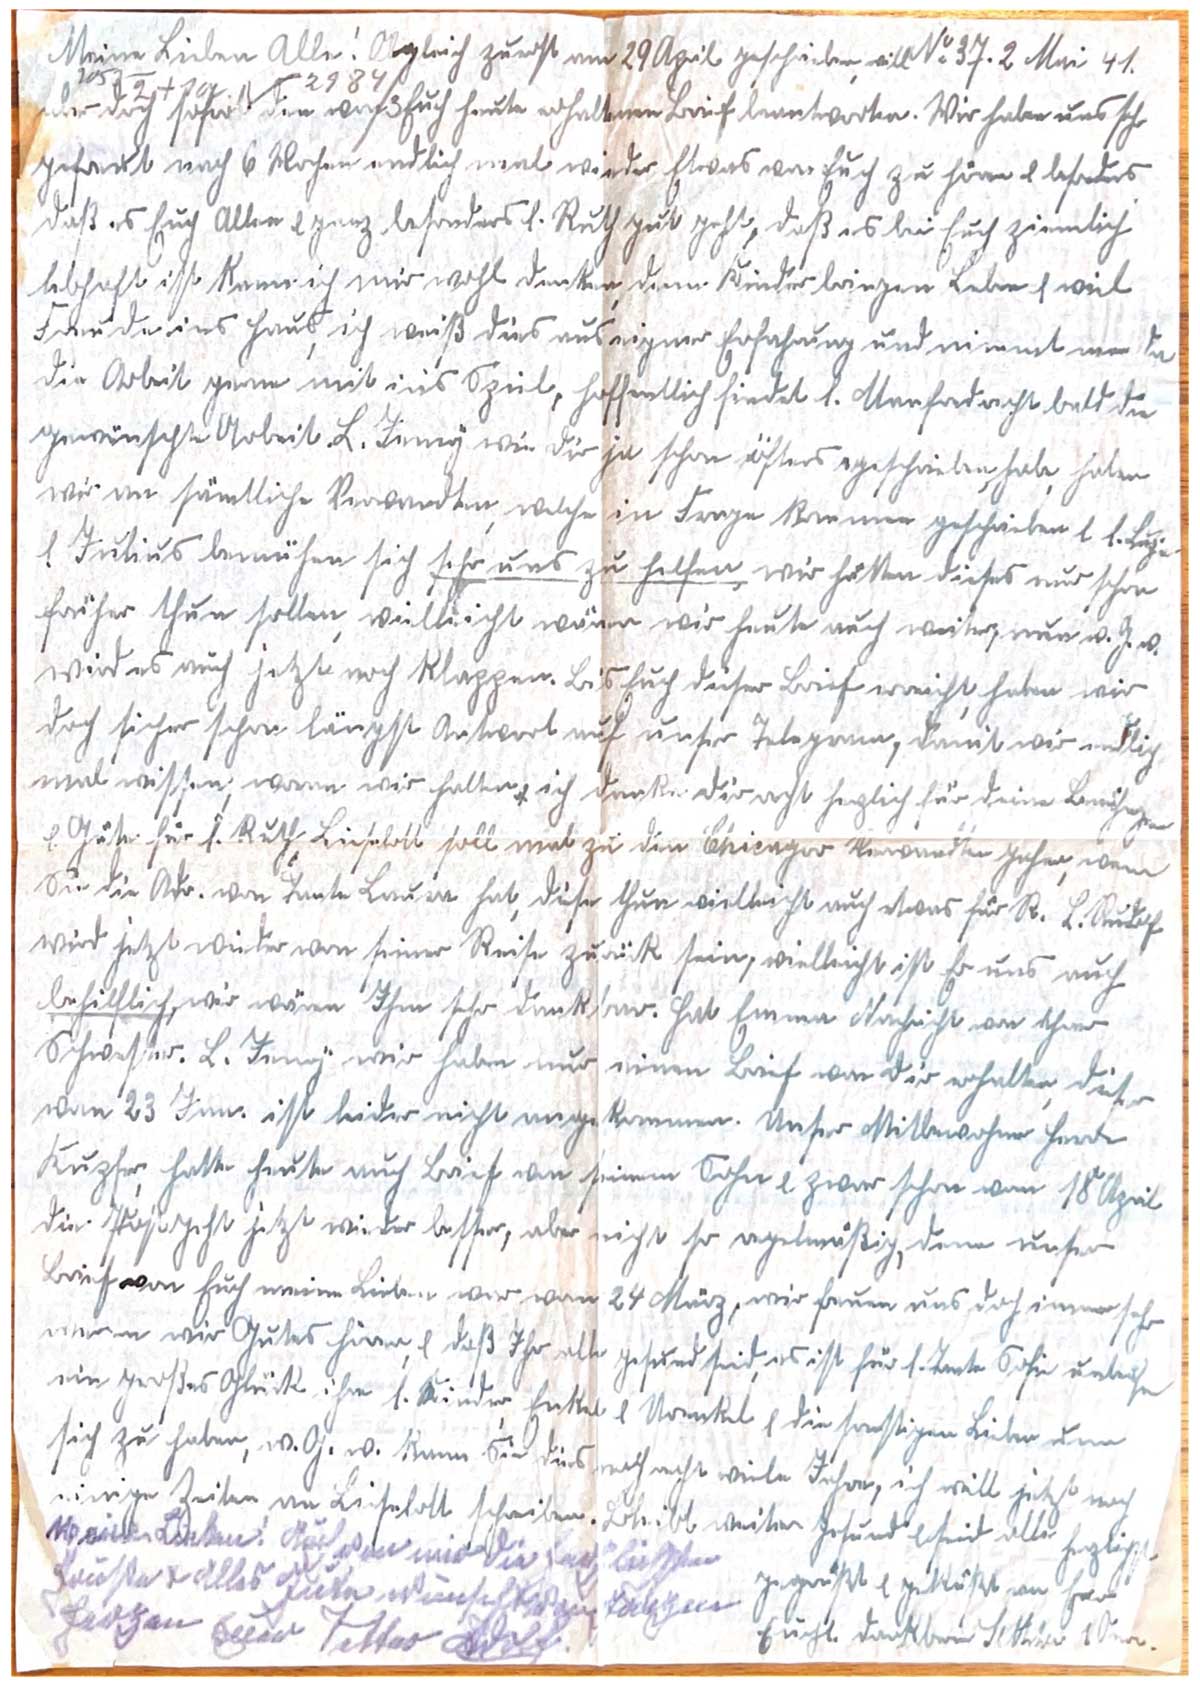 Meine Lieben Alle! Obgleich zuerst am 29 April geschrieben, will No 37. 2 Mai 41.
2984
aber doch sofort den von Euch heute erhaltenen Brief beantworten. Wir haben uns sehr
gefreut nach 6 Wochen endlich mal wieder Etwas von Euch zu hören & besonders
daß es Euch Allen & ganz besonders l. Ruth gut geht, daß es bei Euch ziemlich
lebhaft ist kann ich mir wohl denken, denn Kinder bringen Leben & viel
Freude ins Haus, ich weiß dies aus eigner Erfahrung und nimmt man da
die Arbeit gerne mit in's Spiel, hoffentlich findet l. Manfred recht bald die
gewünschte Arbeit. L. Jenny wie Dir ja schon öfters geschrieben habe, haben
wir an sämtliche Verwandten, welche in Frage kommen geschrieben &
l. Julius bemühen sich sehr uns zu helfen, wir hätten dieses nur schon
früher thun sollen, vielleicht wären wir heute auch weiter, nun w. G. w.
wird es auch jetzt noch klappen. Bis Euch dieser Brief erreicht, haben wir
doch sicher schon längst Antwort auf unser Telegramm, damit wir endlich
mal wissen, woran wir halten, ich danke Dir recht herzlich für deine Bemühungen
& Güte für l. Ruth. Lieselott soll mal zu den Chicagoer Verwandten gehen, wenn
Sie die Adr. von Tante Laura hat, diese thun vielleicht auch etwas für R. L. Rudolf
wird jetzt wieder von seiner Reise zurück sein, vielleicht ist Er uns auch
behilflich, wir wären Ihm sehr dankbar. Hat Emma Nachricht von ihrer
Schwester. L. Jenny wir haben nur einen Brief von Dir erhalten, dieser
vom 23 Jan. ist leider nicht angekommen. Unser Mitbewohner
hatte heute auch Brief von seinem Sohn & zwar schon vom 18 April
die Post geht jetzt wieder besser, aber nicht so regelmäßig, denn unser
Brief von Euch meine Lieben war vom 24 März, wir freuen uns doch immer sehr
wenn wir Gutes hören, & daß Ihr alle gesund seid, es ist für l. Tante Sofie
ein großes Glück ihre l. Kinder, Enkel & Urenkel & die sonstigen Lieben um
sich zu haben, w. G. w. kann Sie dies noch recht viele Jahre, ich will jetzt noch
einige Zeilen an Lieselott schreiben. Bleibt weiter gesund & seid alle herzlichst
gegrüßt & geküßt von Eurer
Euch l. dankbaren
Meine Lieben! Auch von mir die herzlichsten
Grüße & alles Gute wünscht von ganzem
Herzen Euer Vetter Adolf.